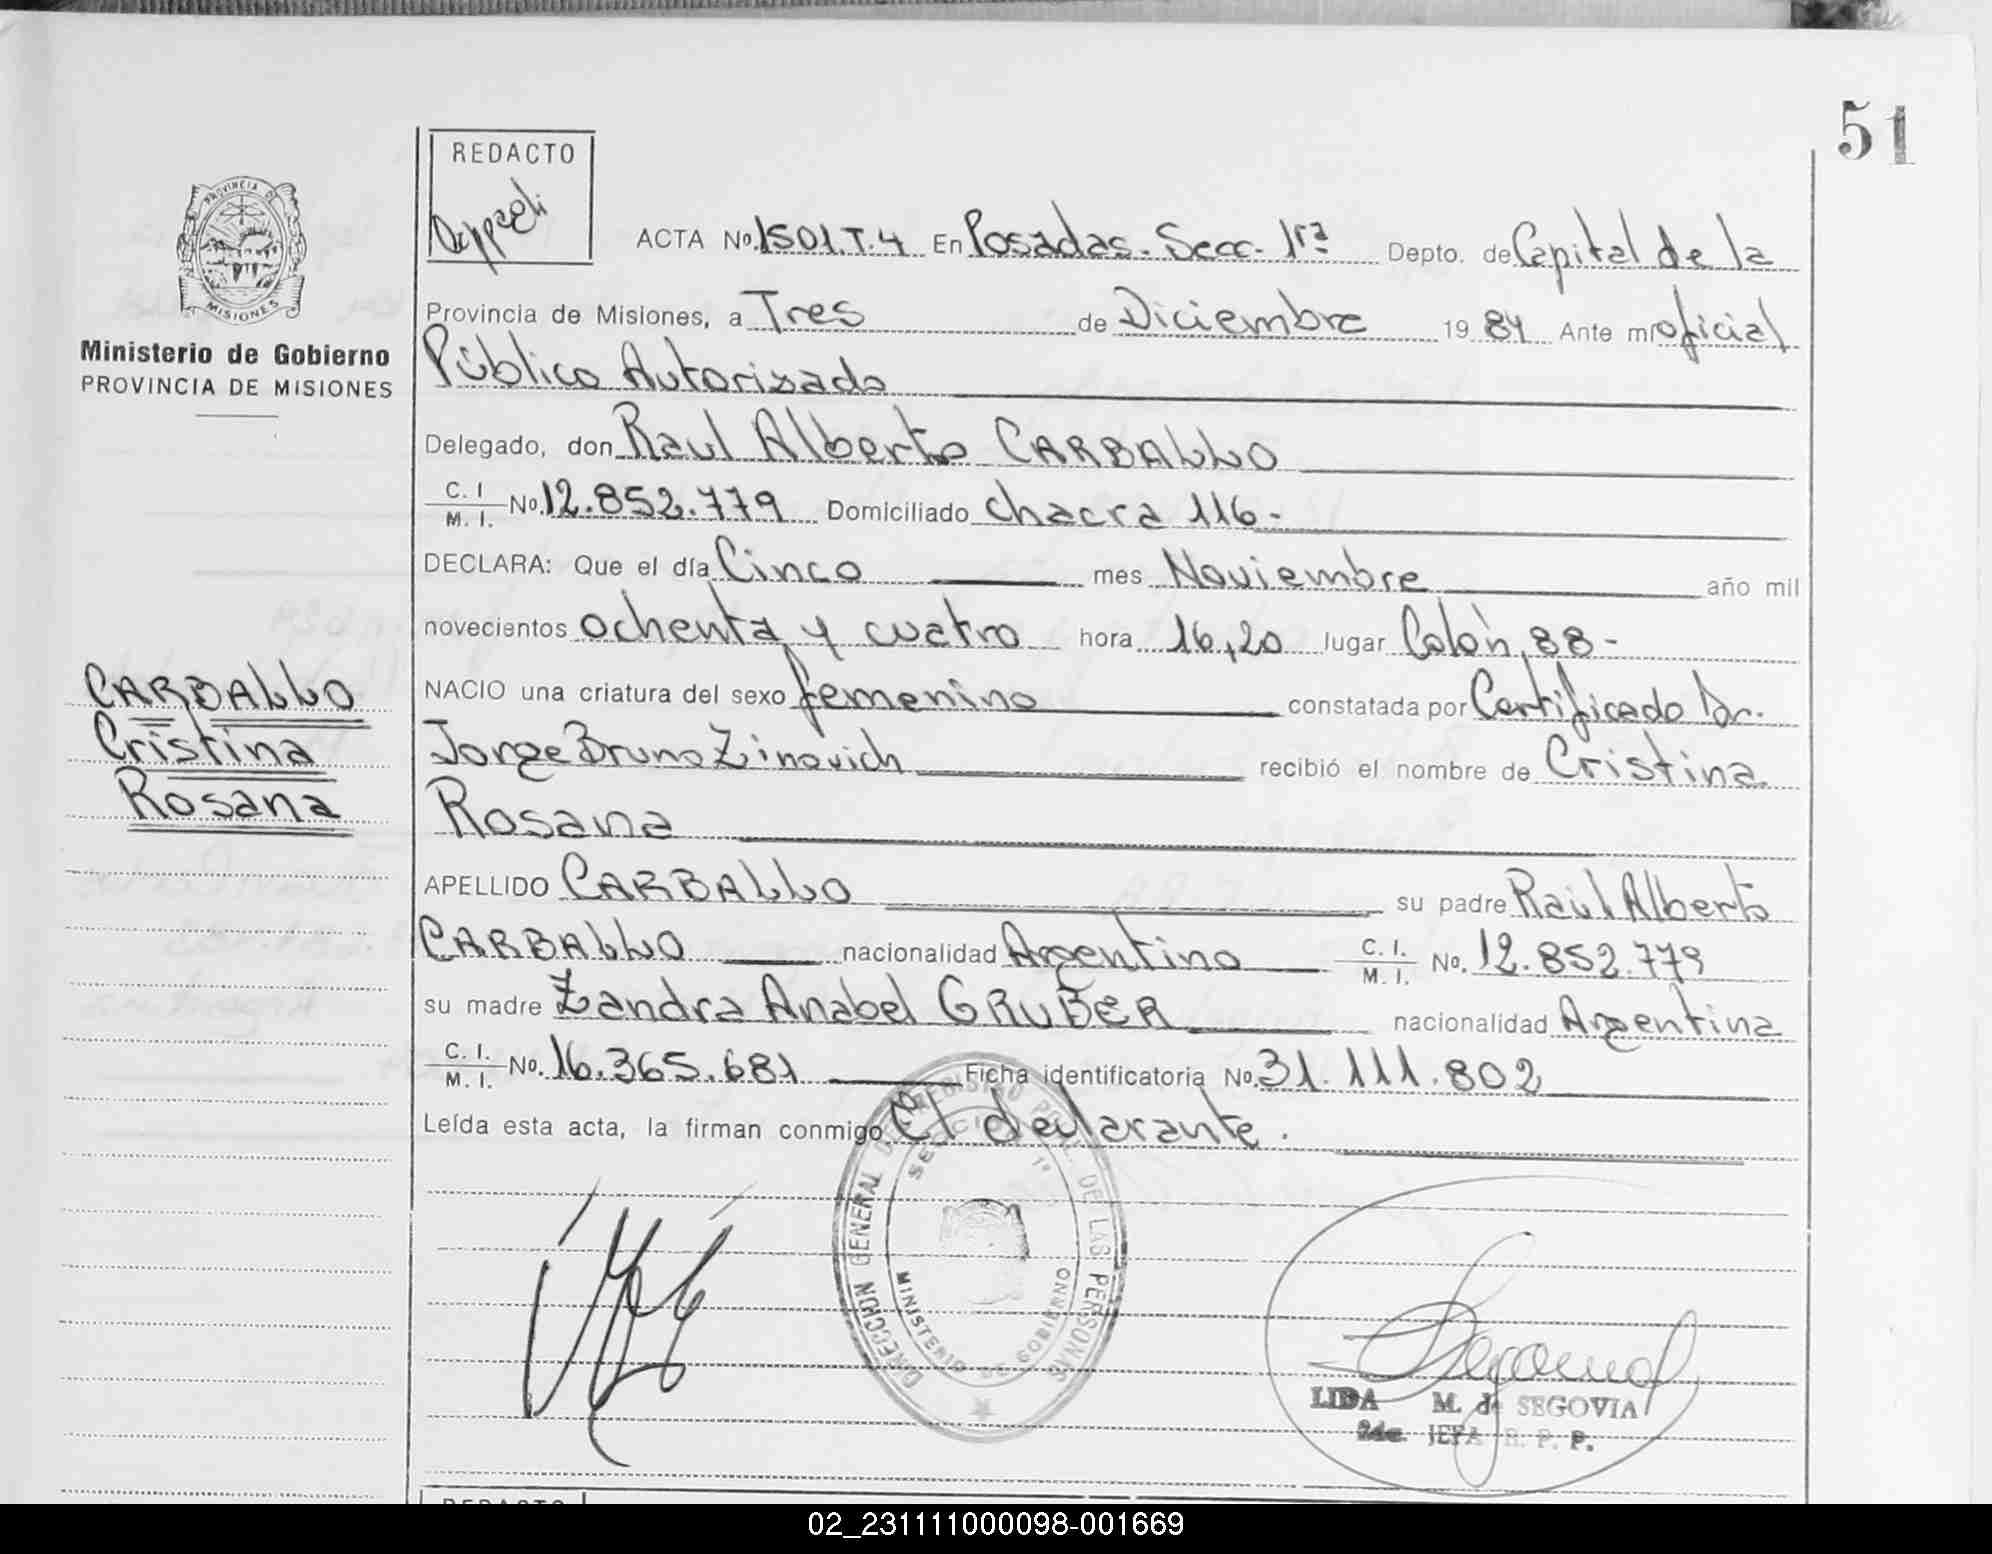 51
REDACTO
PROVINCIA DE
MISIONES
Ministerio de Gobierno
PROVINCIA DE MISIONES
ACTA No. 1501.T.4 En Posadas. Secc. 1ra Depto. de Capital de la
Provincia de Misiones, a Tres de Diciembre 1984 Ante mi oficial
Público Autorizado
Delegado, don Raul Alberto CARBALLO
C. I. M. I. No. 12.852.779 Domiciliado chacra 116-
DECLARA: Que el día Cinco mes Noviembre año mil
novecientos ochenta y cuatro hora 16,20 lugar Colón, 88-
NACIO una criatura del sexo femenino constatada por Certificado Dr.
Jorge Bruno Zinovich recibió el nombre de Cristina
Rosana
CARBALLO
Cristina
Rosana
APELLIDO CARBALLO su padre Raúl Alberto
CARBALLO nacionalidad Argentino C. I. M. I. No. 12.852.779
su madre Zandra Anabel GRUBER nacionalidad Argentina
C. I. M. I. No. 16.365.681 Ficha identificatoria No. 31.111.802
Leída esta acta, la firman conmigo El declarante.
DIRECCION GENERAL DEL REGISTRO POV. DE LAS PERSONAS
SECCION 1ª
MINISTERIO DE GOBIERNO
LIDA M. de SEGOVIA
2da. JEFA R. P. P.
REDACTO
02_231111000098-001669